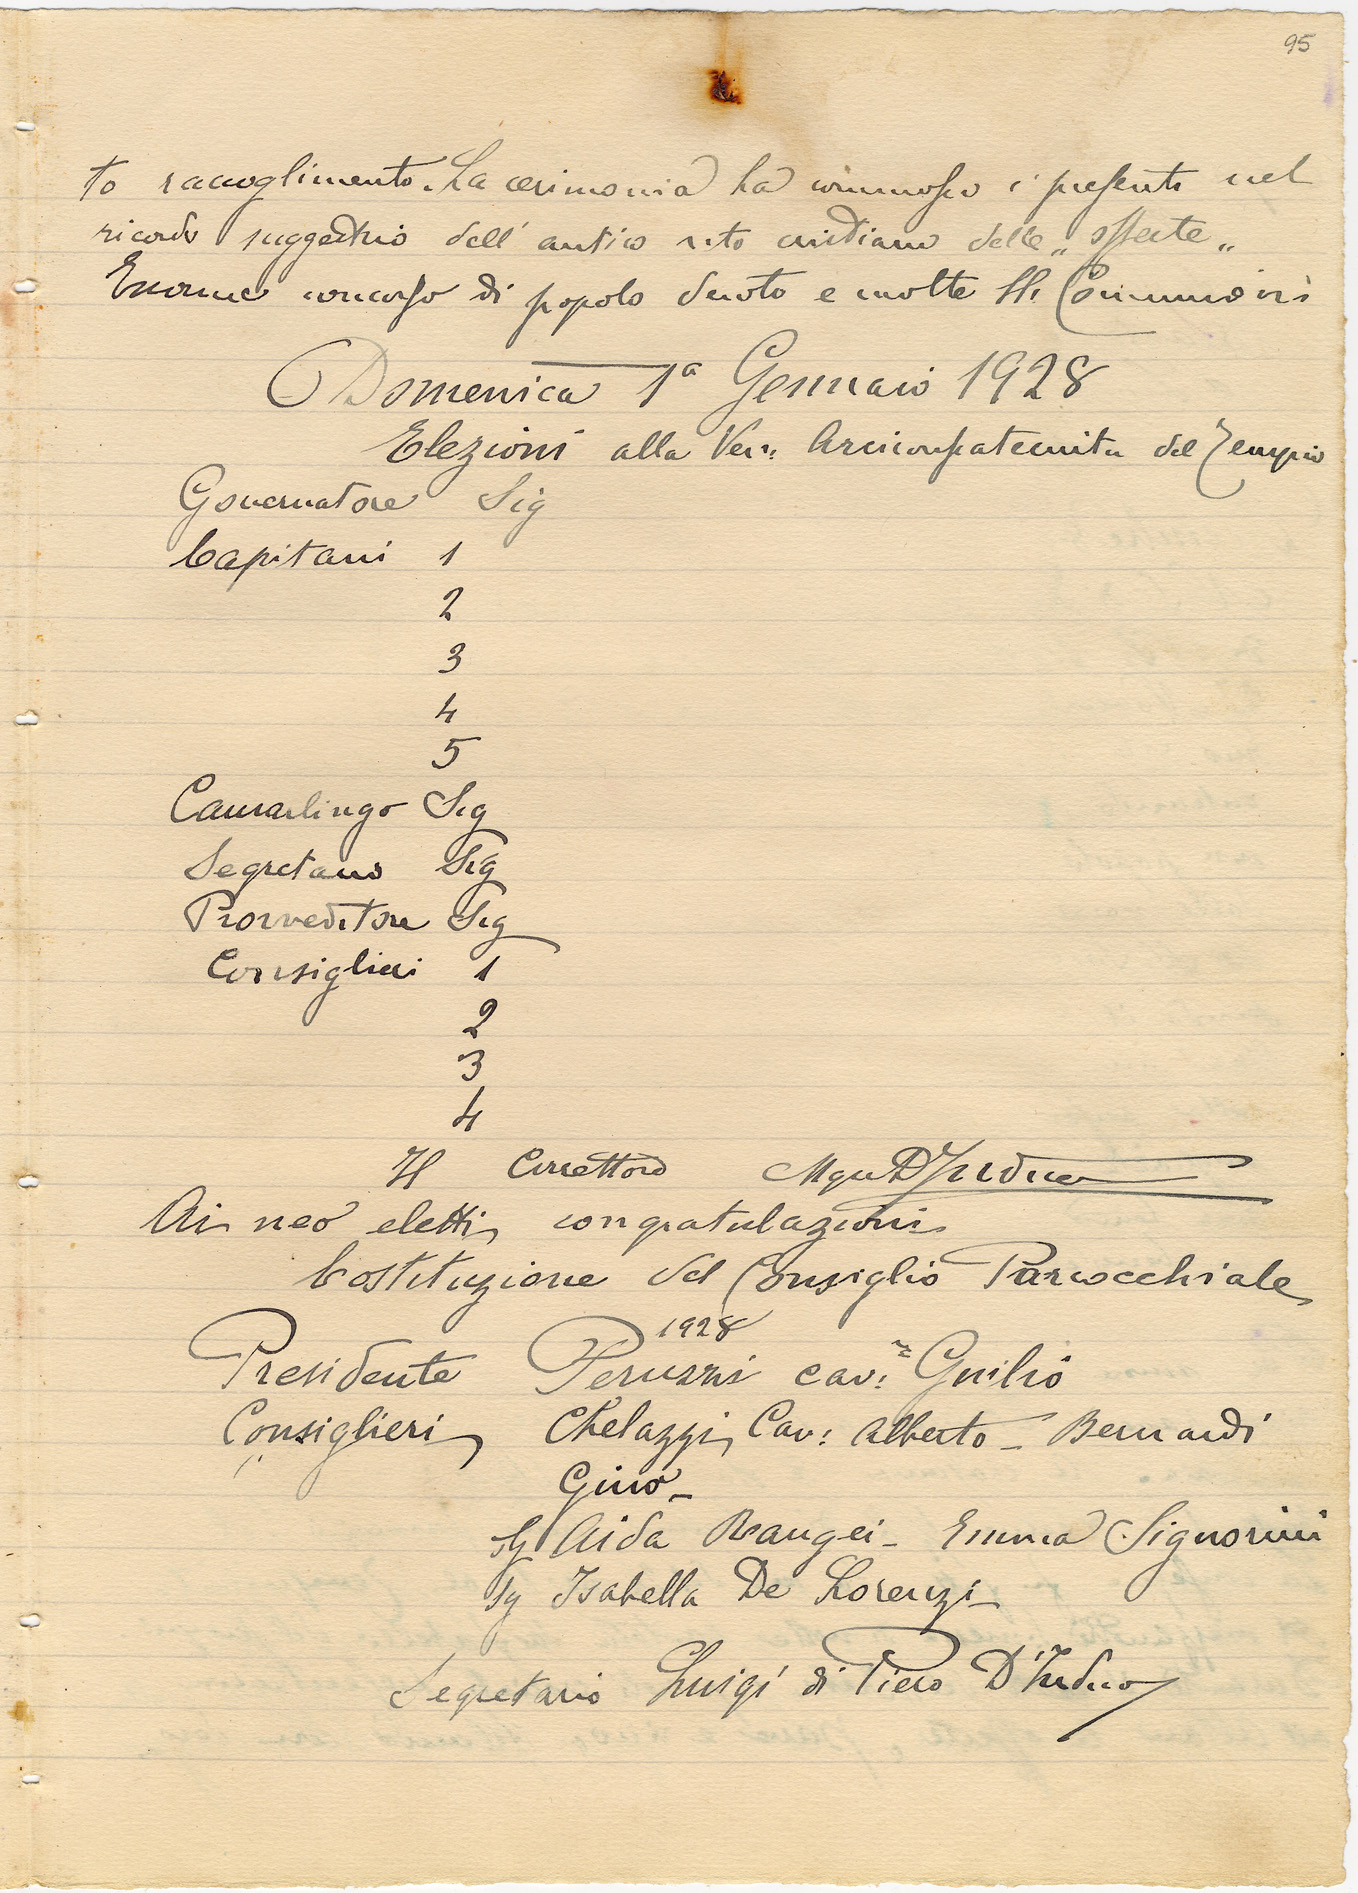 95
to raccoglimento. La cerimonia ha commosso i presenti nel
ricordo suggestivo dell' antico rito cristiano delle „ offerte „
Enorme concorso di popolo devoto e molte SS. Comunioni
Domenica 1ª Gennaio 1928
Elezioni alla Ven: Arciconfraternita del Tempio
Governatore Sig
Capitani 1
2
3
4
5
Camarlingo Sig
Segretario Sig
Provveditore Sig
Consiglieri 1
2
3
4
Il Correttore Mgr D'Indico
Ai neo eletti congratulazioni
Costituzione del Consiglio Parrocchiale
1928
Presidente Peruzzi cav: Giulio
Consiglieri Chelazzi Cav: Alberto - Bernardi
Gino -
Sg Aida Rangei - Emma Signorini
Sg Isabella De Lorenzi -
Segretario Luigi di Piero D'Indico